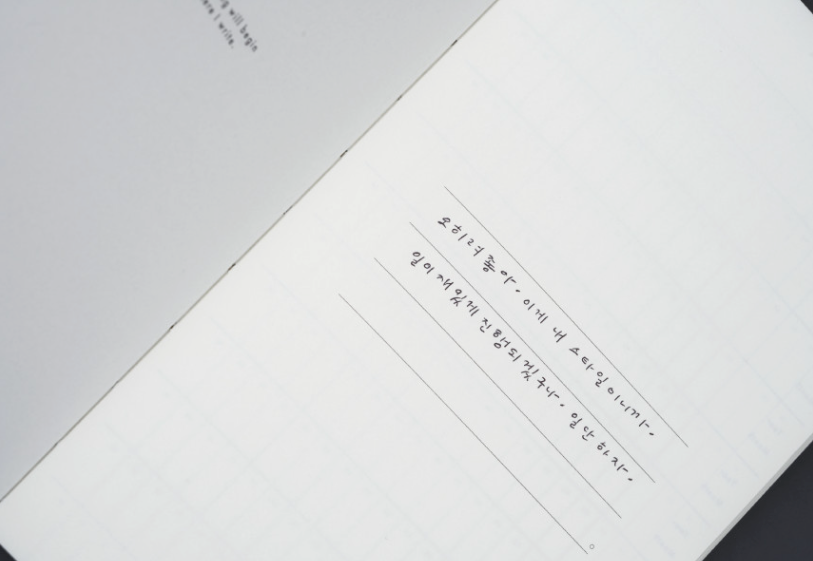 ng will begin
ere I write.
오히려 좋아. 이게 내 스타일이니까.
일이 재밌게 진행되겠구나. 일단 하자.